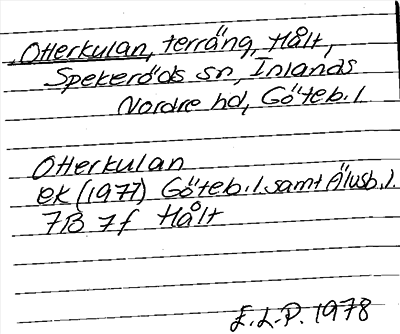 Otterkulan, terräng, Hålt,
Spekeröds sn, Inlands
Nordre hd, Göteb. l
Otterkulan
ek (1977) Göteb. l samt Älvsb. l.
7B 7f Hålt
E.L.P. 1978